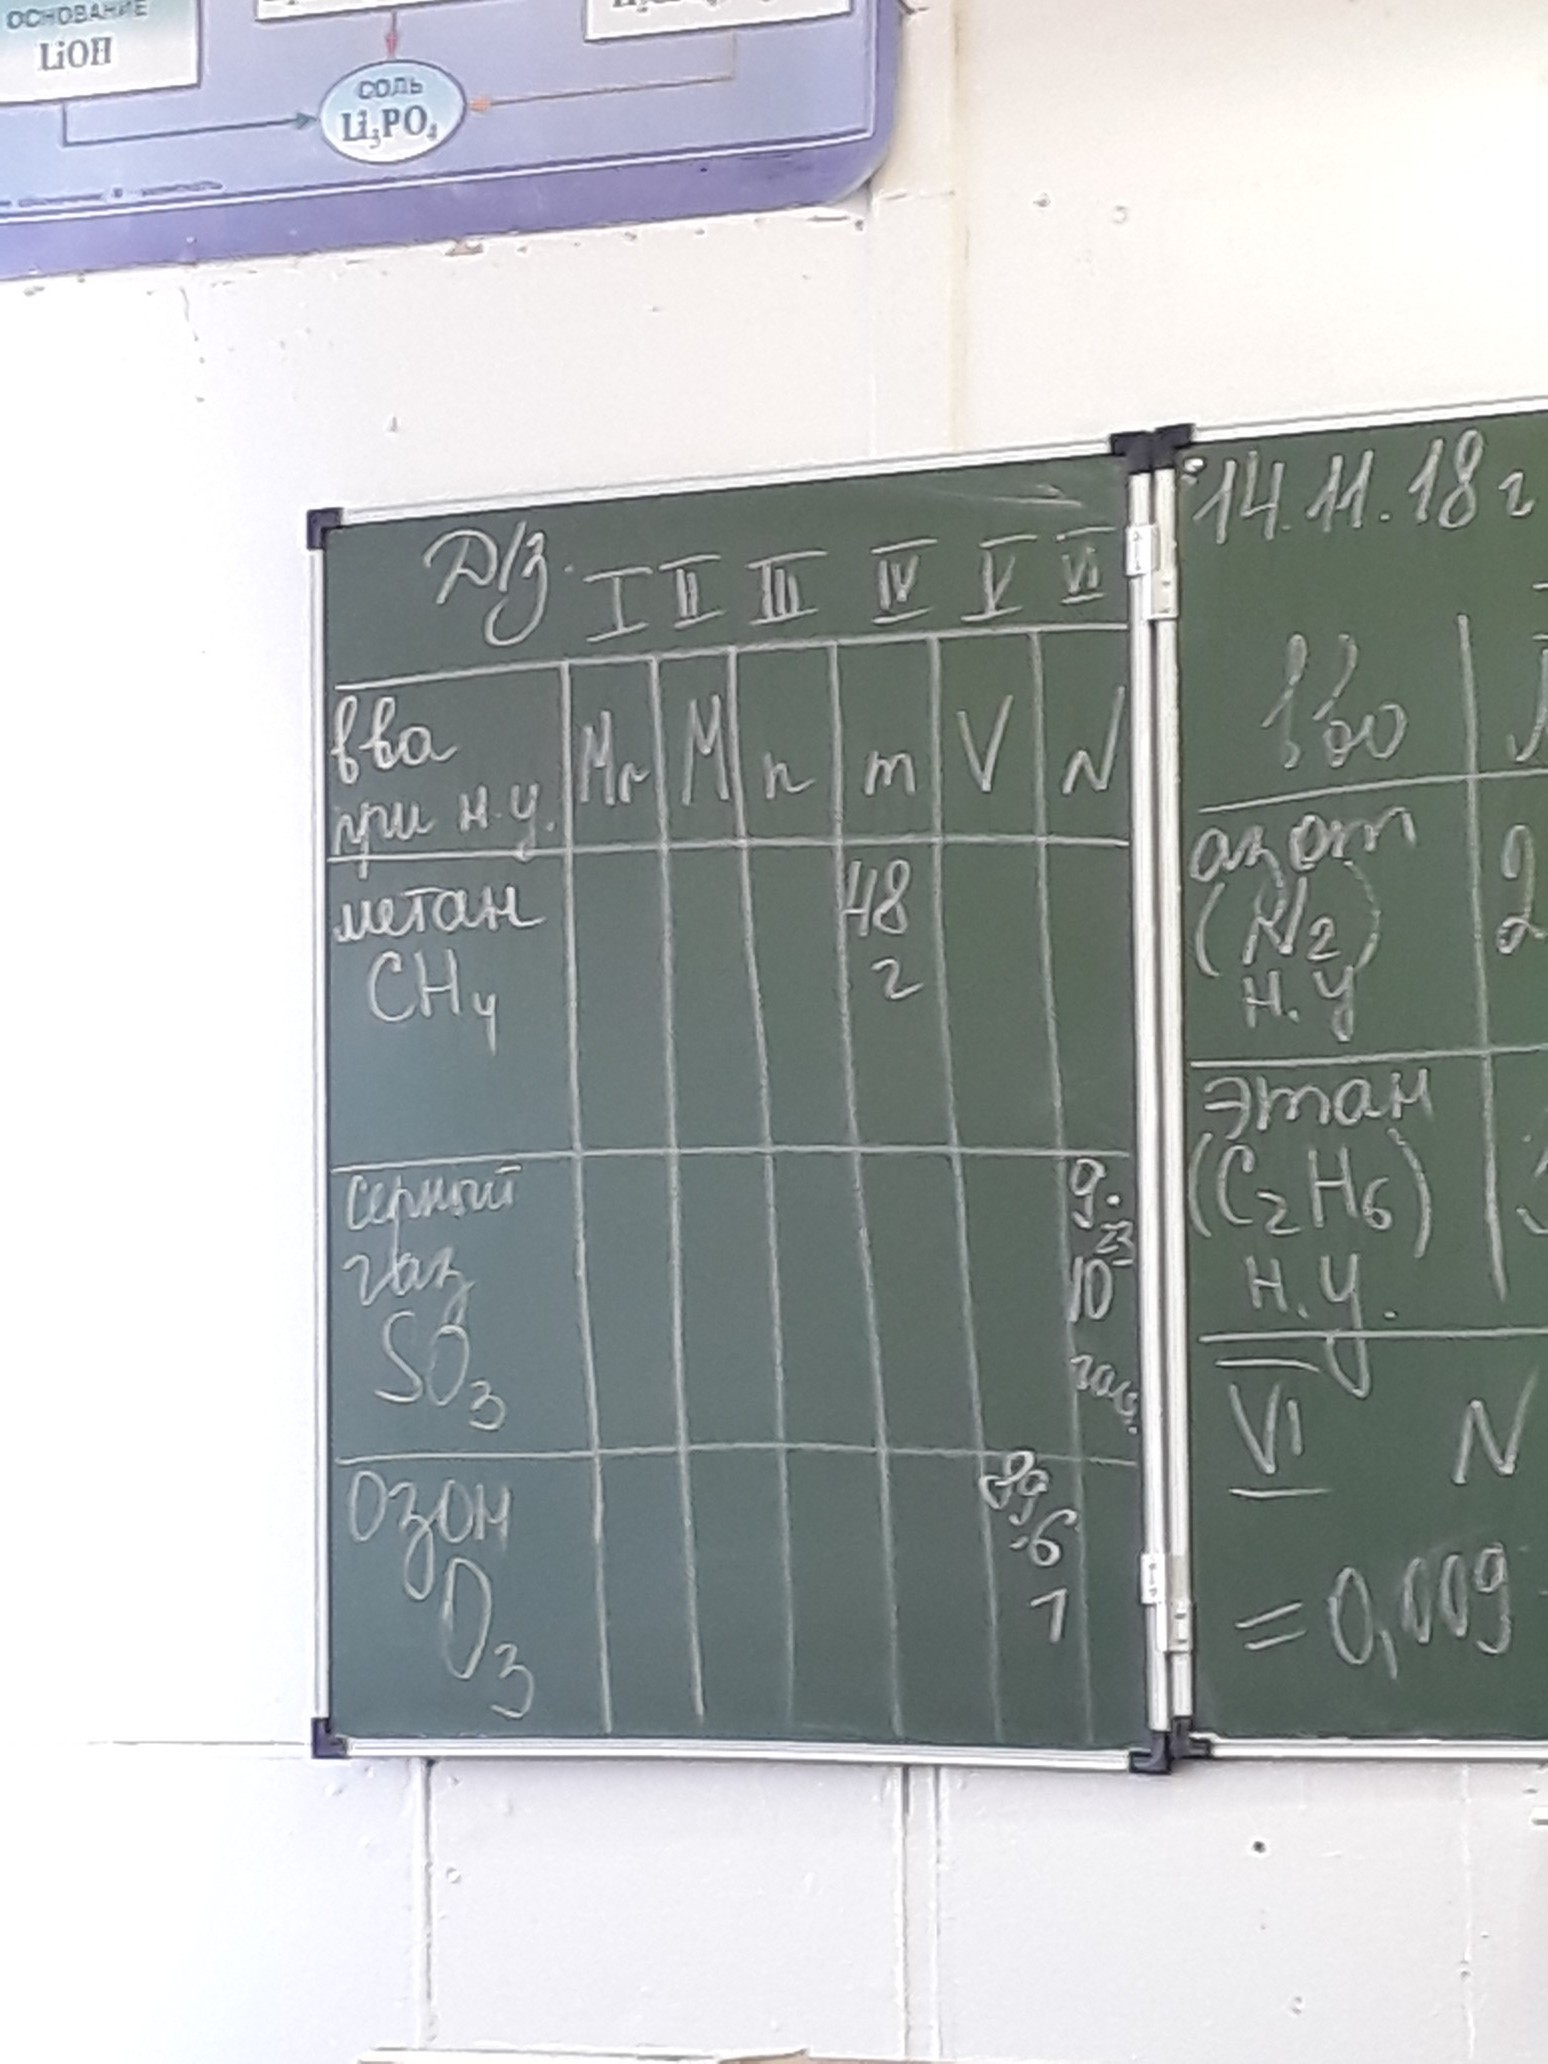 ОСНОВАНИЕ
LiOH
СОЛЬ
Li₃PO₄
Д/з. I II III IV V VI
вва
при н.у.
Mr M n m V N
метан
CH₄
48
г
серный
газ
SO₃
9·
10²³
мол.
Озон
O₃
89
,6
л
14.11.18 г
в-во
азот
(N₂)
н.у
2
2
этан
(C₂H₆)
н.у.
VI N
= 0,009